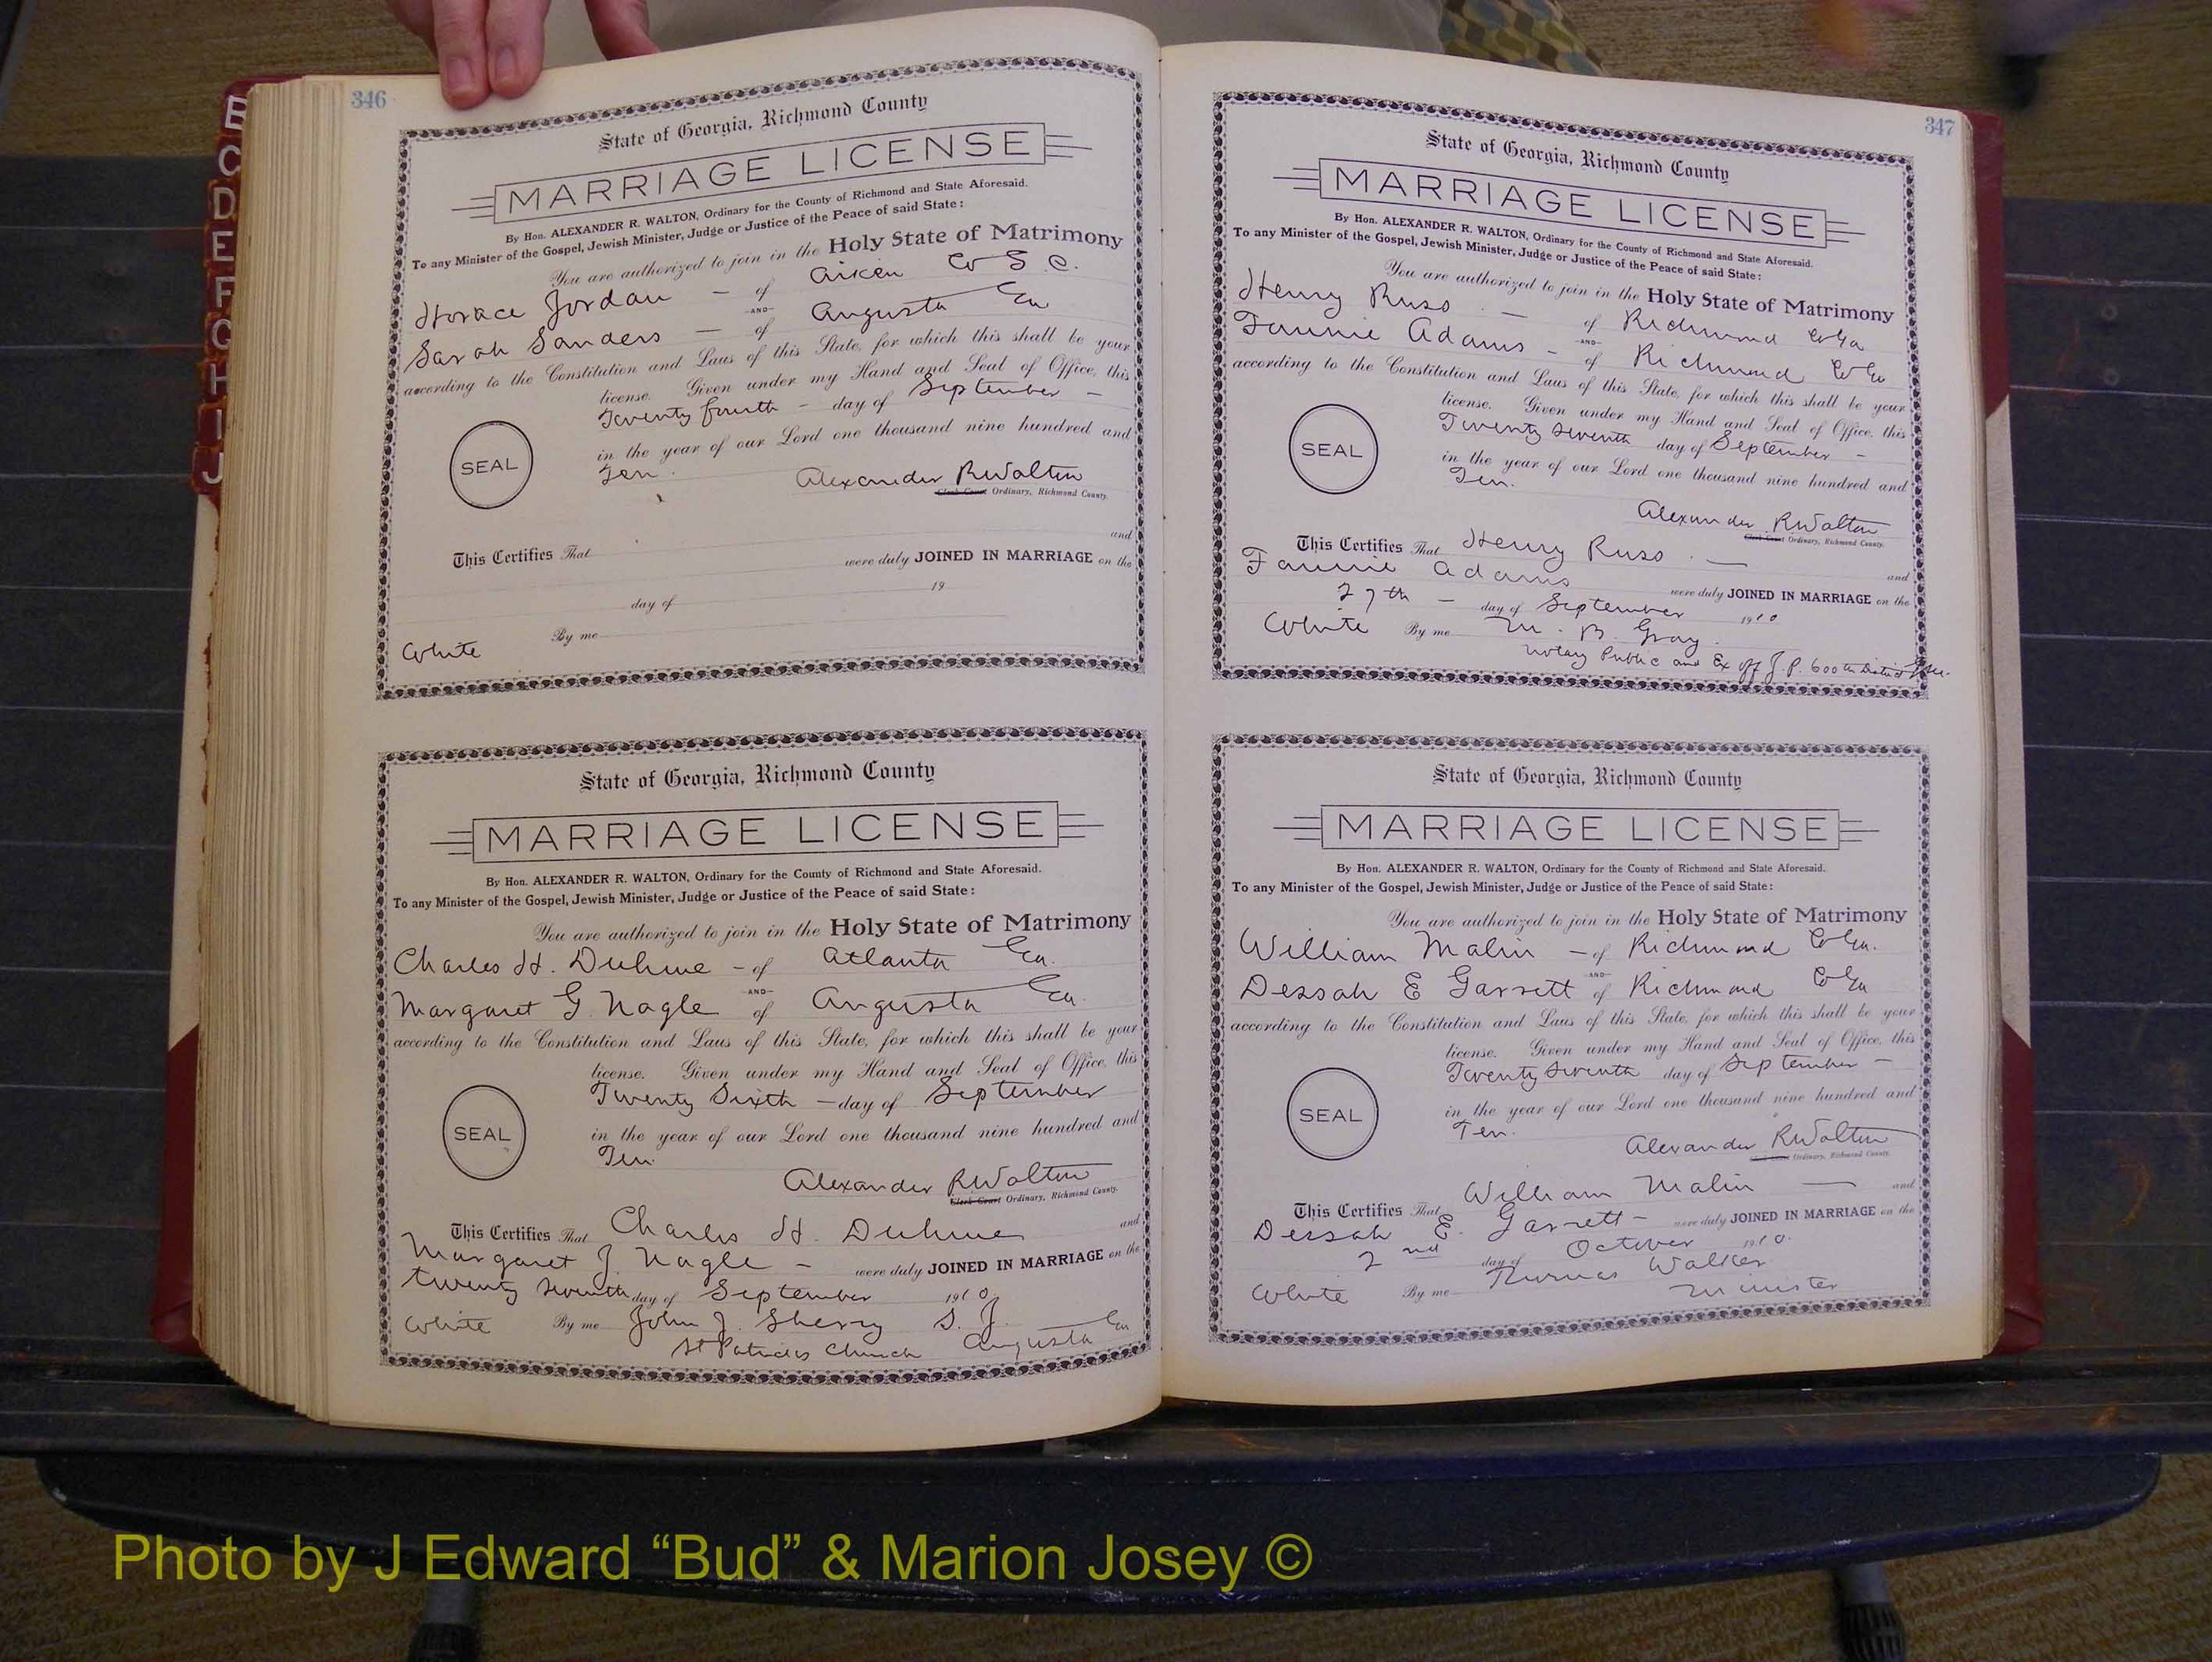 B
C
D
E
F
G
H
I
J
346
State of Georgia, Richmond County
MARRIAGE LICENSE
By Hon. ALEXANDER R. WALTON, Ordinary for the County of Richmond and State Aforesaid.
To any Minister of the Gospel, Jewish Minister, Judge or Justice of the Peace of said State:
You are authorized to join in the Holy State of Matrimony
Horace Jordan — of Aiken Co S. C.
—AND—
Sarah Sanders — of Augusta Ga
according to the Constitution and Laws of this State, for which this shall be your
license. Given under my Hand and Seal of Office, this
Twenty fourth — day of September —
in the year of our Lord one thousand nine hundred and
Ten.
SEAL
Alexander R Walton
Clerk Court Ordinary, Richmond County.
This Certifies That and
were duly JOINED IN MARRIAGE on the
day of 19
White By me
State of Georgia, Richmond County
MARRIAGE LICENSE
By Hon. ALEXANDER R. WALTON, Ordinary for the County of Richmond and State Aforesaid.
To any Minister of the Gospel, Jewish Minister, Judge or Justice of the Peace of said State:
You are authorized to join in the Holy State of Matrimony
Charles H. Duhme — of Atlanta Ga.
—AND—
Margaret G. Nagle of Augusta Ga.
according to the Constitution and Laws of this State, for which this shall be your
license. Given under my Hand and Seal of Office, this
Twenty Sixth — day of September
in the year of our Lord one thousand nine hundred and
Ten.
SEAL
Alexander R Walton
Clerk Court Ordinary, Richmond County.
This Certifies That Charles H. Duhme and
Margaret J. Nagle — were duly JOINED IN MARRIAGE on the
twenty seventh day of September 1910.
White By me John J. Sherry S. J.
St Patricks Church Augusta Ga
347
State of Georgia, Richmond County
MARRIAGE LICENSE
By Hon. ALEXANDER R. WALTON, Ordinary for the County of Richmond and State Aforesaid.
To any Minister of the Gospel, Jewish Minister, Judge or Justice of the Peace of said State:
You are authorized to join in the Holy State of Matrimony
Henry Russ — of Richmond Co Ga
—AND—
Fannie Adams — of Richmond Co Ga
according to the Constitution and Laws of this State, for which this shall be your
license. Given under my Hand and Seal of Office, this
Twenty Seventh day of September —
in the year of our Lord one thousand nine hundred and
Ten.
SEAL
Alexander R Walton
Clerk Court Ordinary, Richmond County.
This Certifies That Henry Russ — and
Fannie Adams were duly JOINED IN MARRIAGE on the
27th — day of September 1910
White By me M. B. Gray.
Notary Public and Ex off J. P. 600th District
State of Georgia, Richmond County
MARRIAGE LICENSE
By Hon. ALEXANDER R. WALTON, Ordinary for the County of Richmond and State Aforesaid.
To any Minister of the Gospel, Jewish Minister, Judge or Justice of the Peace of said State:
You are authorized to join in the Holy State of Matrimony
William Malin — of Richmond Co Ga.
—AND—
Dessah E Garrett of Richmond Co Ga
according to the Constitution and Laws of this State, for which this shall be your
license. Given under my Hand and Seal of Office, this
Twenty Seventh day of September —
in the year of our Lord one thousand nine hundred and
Ten.
SEAL
Alexander R Walton
Clerk Court Ordinary, Richmond County.
This Certifies That William Malin — and
Dessah E. Garrett — were duly JOINED IN MARRIAGE on the
2nd day of October 1910.
White By me Thomas Walker
Minister
Photo by J Edward “Bud” & Marion Josey ©